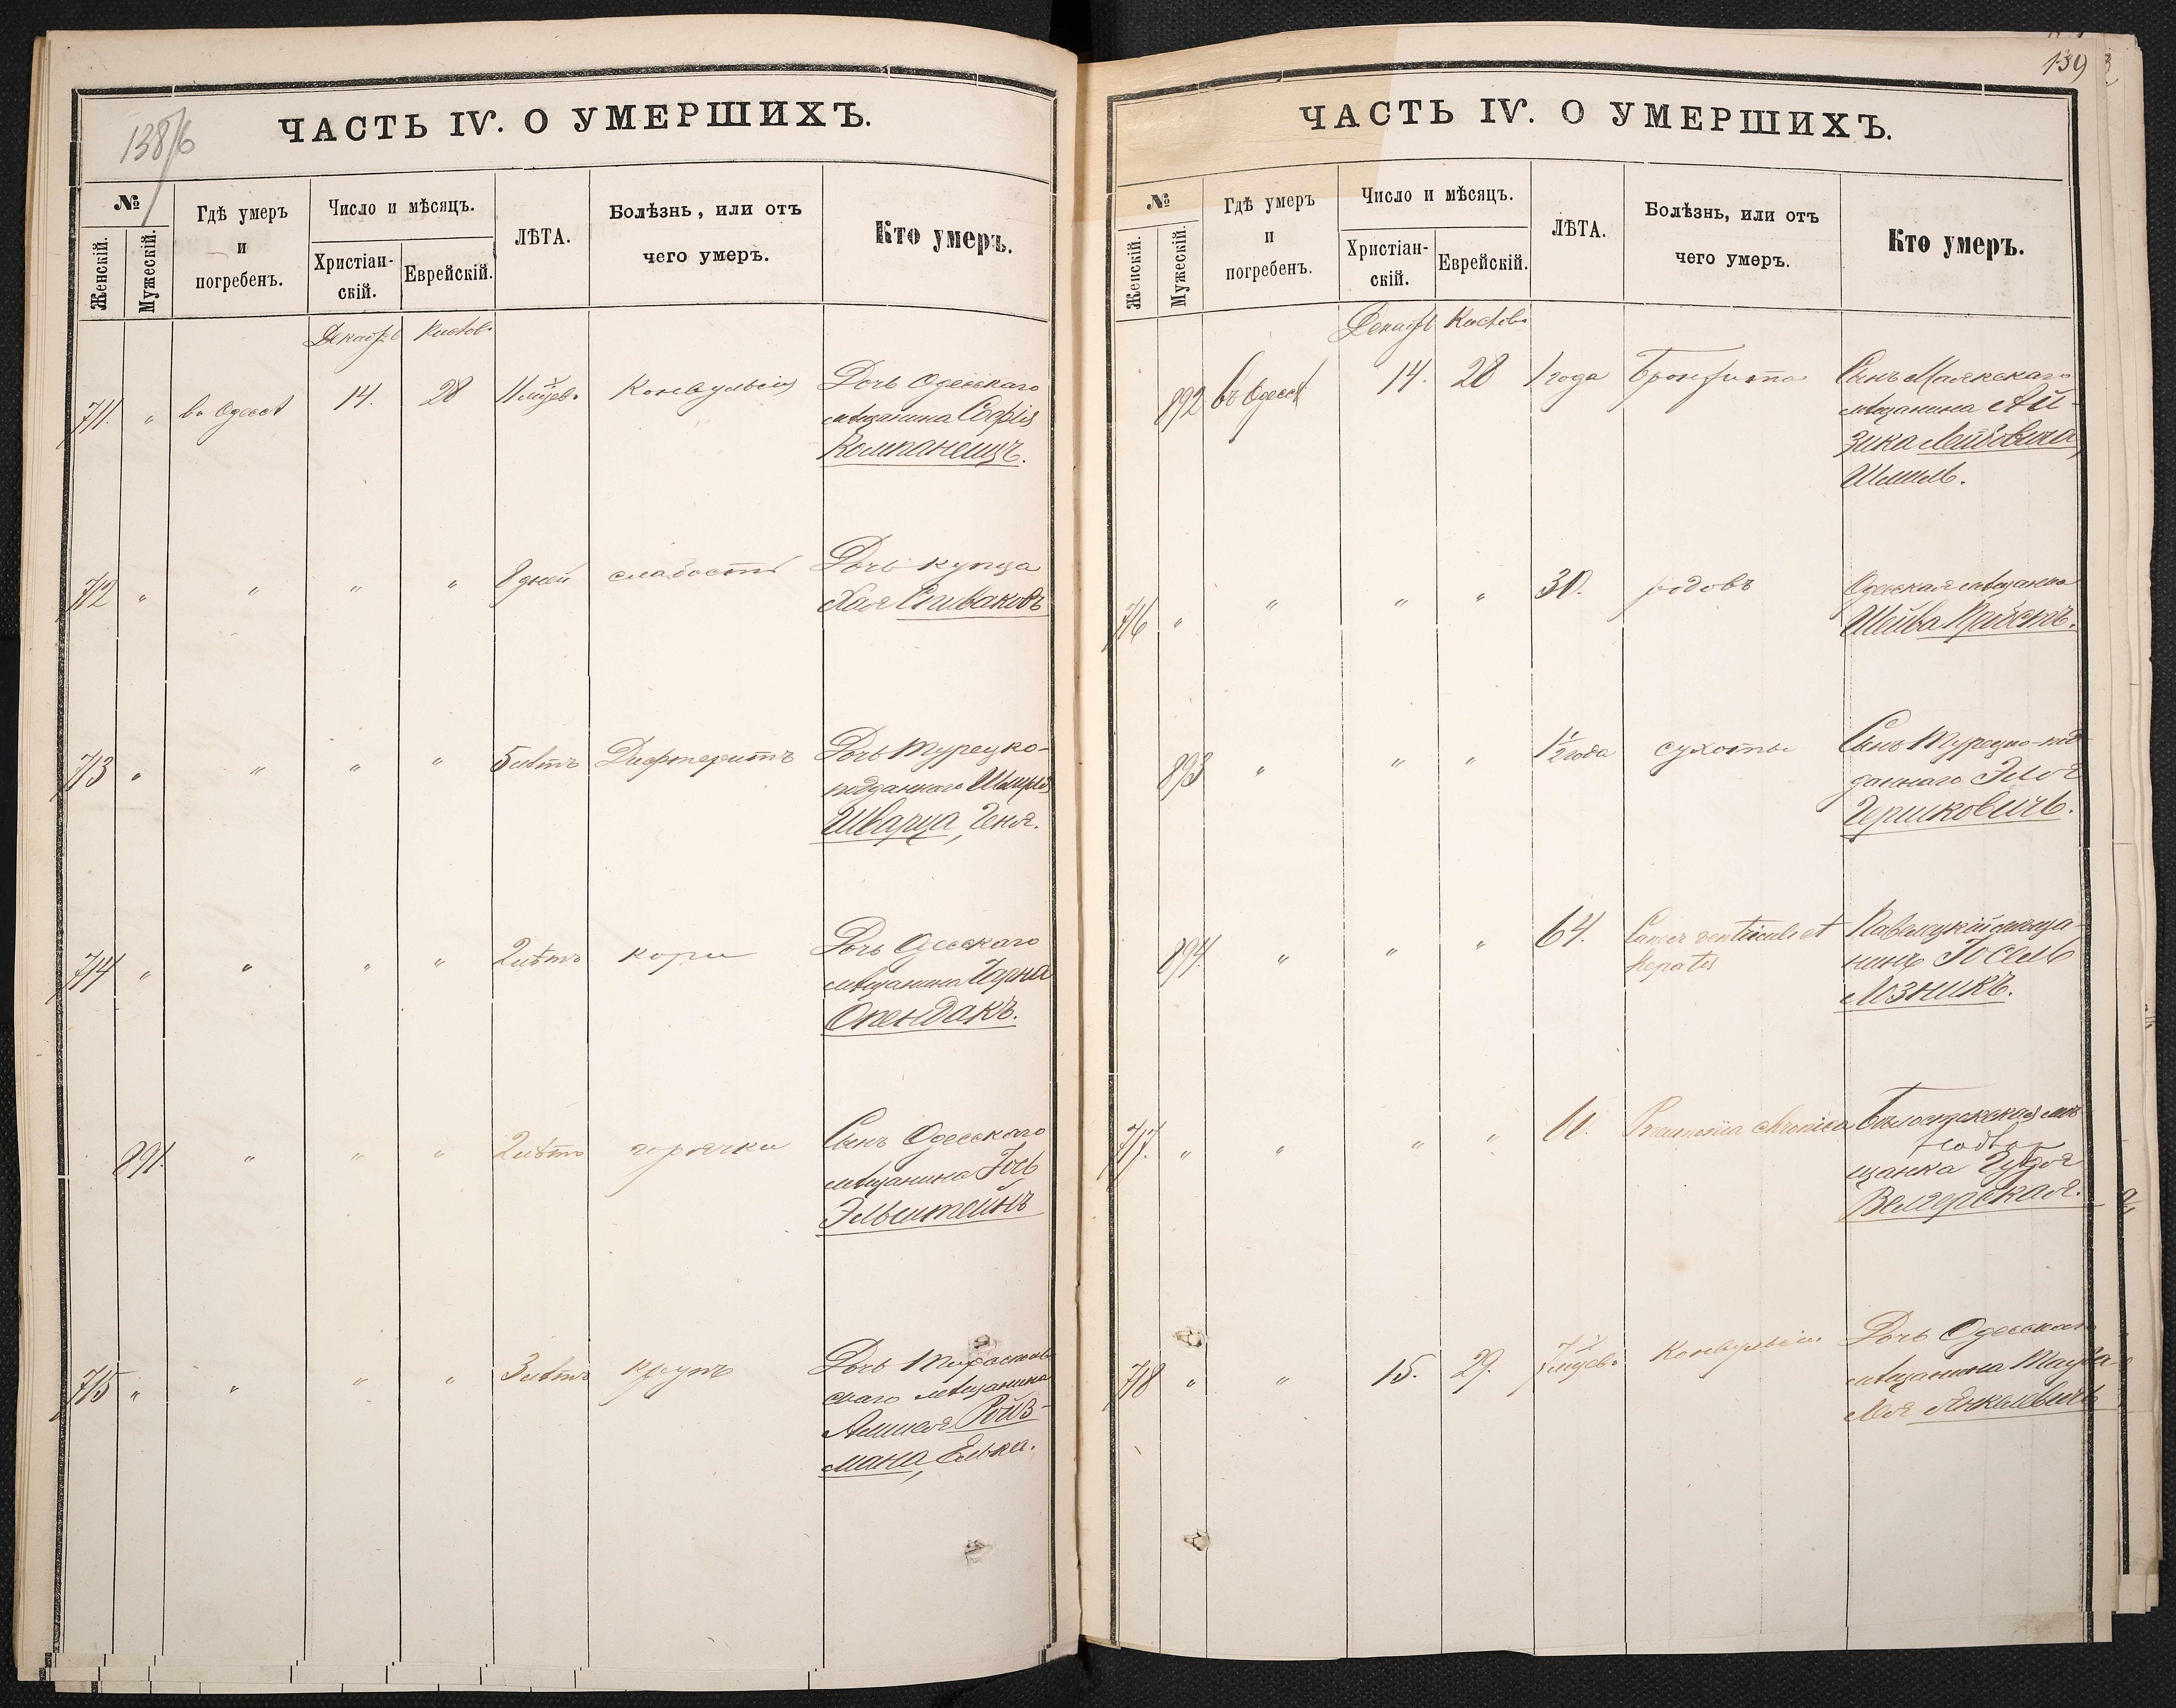 138/6
ЧАСТЬ IV. О УМЕРШИХЪ.
№
Женскій.
Мужескій.
Гдѣ умеръ
и
погребенъ.
Число и мѣсяцъ.
Христіан-
скій.
Еврейскій.
ЛѢТА.
Болѣзнь, или отъ
чего умеръ.
Кто умеръ.
Декабрь Кислевъ
711. " въ Одессѣ 14. 28 11 мѣсяцевъ Конвульсіи Дочь Одесскаго
мѣщанина Софія
Компанеецъ.
712 " " " " 8 дней слабости Дочь купца
Хая Спиваковъ
713 " " " " 5 лѣтъ Дифтеритъ Дочь Турецко-
подданнаго Шмиря
Шварца, Геня.
714 " " " " 2 лѣтъ кори Дочь Одесскаго
мѣщанина Чарна
Опендакъ.
891. " " " 2 лѣтъ горячки Сынъ Одесскаго
мѣщанина Іось
Эльштейнъ
715 " " " " 3 лѣтъ крупъ Дочь Тираспол-
скаго мѣщанина
Ройз-
мана, Элька.
139
ЧАСТЬ IV. О УМЕРШИХЪ.
№
Женскій.
Мужескій.
Гдѣ умеръ
и
погребенъ.
Число и мѣсяцъ.
Христіан-
скій.
Еврейскій.
ЛѢТА.
Болѣзнь, или отъ
чего умеръ.
Кто умеръ.
Декабрь Кислевъ
892 въ Одессѣ 14. 28 1 года Бронхита Сынъ Маякскаго
мѣщанина Ай-
зика Лейбовича,
Шмиль.
716 " " " " 30. родовъ Одесская мѣщанка
Шейва
893 " " " 1½ года сухоты Сынъ Турецко-под-
даннаго Эля
Гершковичъ.
894. " " " 64. Cancer ventriculi et Паволоцкій мѣща-
hepatis нинъ Іосель
Лозникъ.
717. " " " " Pneumonia chronica
щанка
718 " " 15. 29. 7 мѣсяцевъ Конвульсіи Дочь Одесскаго
мѣщанина Тауба
Лея Янкилевичъ